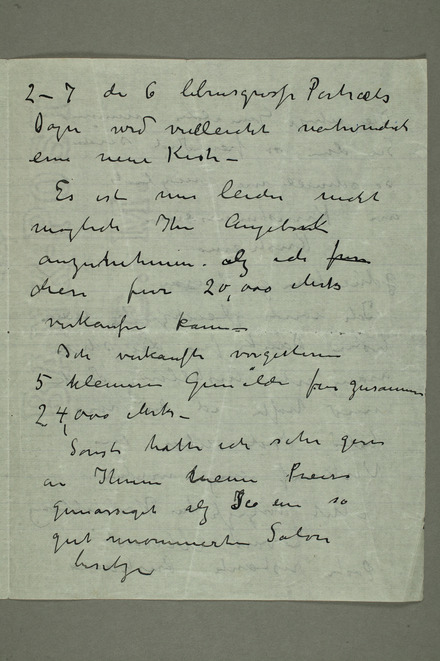 2-7 de 6 lebensgrosse Portraets
Dazu wird vielleicht notwendich
eine neue Kiste -
Es ist mir leider nicht
moglich Ihr Angebot
anzunehmen. als ich
diese fuer 20,000 Mrks
verkaufen kann -
Ich verkaufte vorgestern
5 kleinere Gemälde fur zusammen
24,000 Mrks -
Sonst hätte ich sehr gern
an Ihnen meine Preise
gemassiget als Sie ein so
gut renommierten Salon
besitze